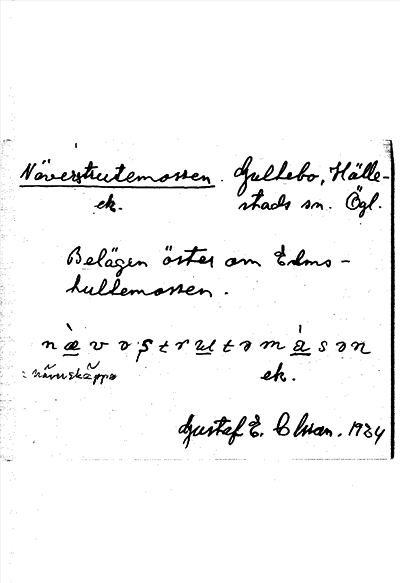 Näverstrutemossen. Gullebo, Hälle-
ek. stads sn. Ögl.
Belägen öster om Edms-
hultemossen.
n æ̀ v ə ʂ t r u t ə m å̀ s ə n
ek.
Gustaf E. Olsson. 1934